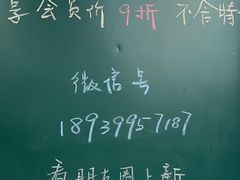 享会员价 9折 不含特
微信号
18939957187
看朋友圈上新